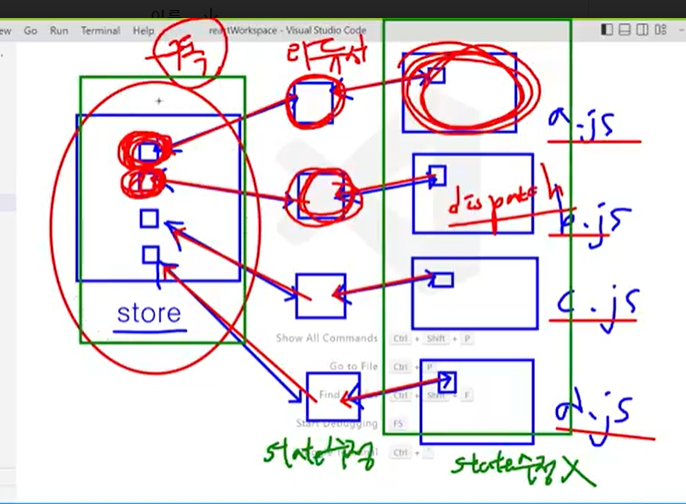 ew Go Run Terminal Help reactWorkspace - Visual Studio Code
리듀서
a.js
dispatch
b.js
c.js
store
Show All Commands Ctrl + Shift + P
Go to File Ctrl + P
Find Ctrl + Shift + F
Start Debugging F5
Ctrl +
d.js
state수정
state수정 X